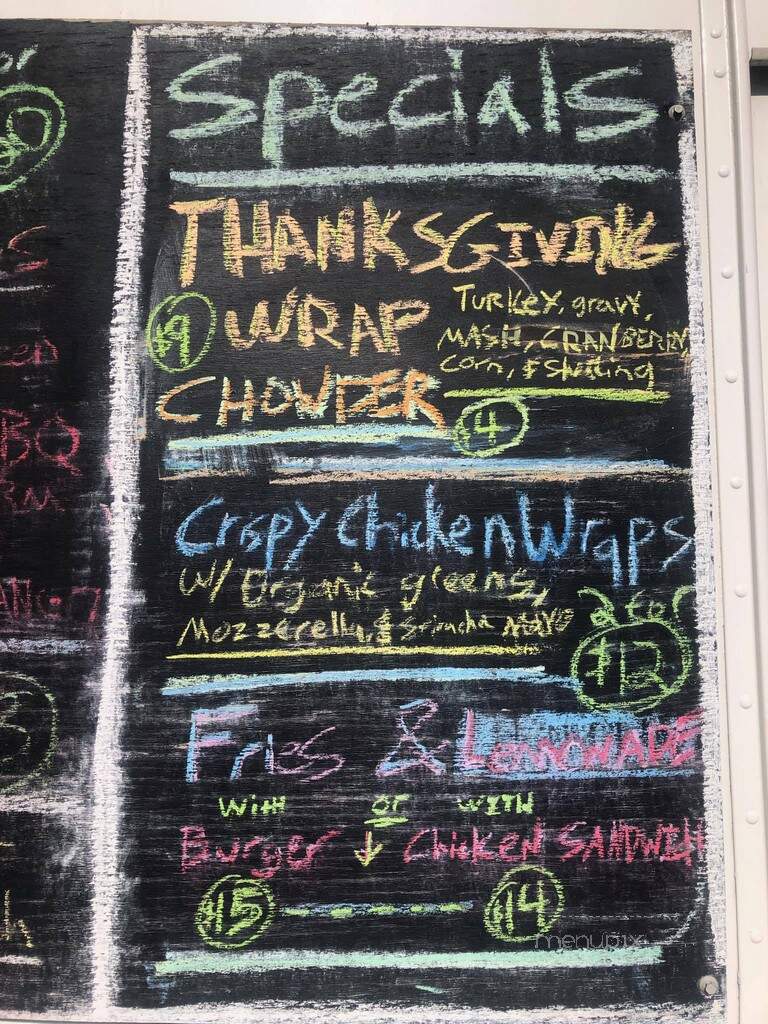 Specials
THANKSGIVING
$9 WRAP
TURKEY, gravy,
MASH, CRANBERRY,
corn, & stuffing
CHOWDER $4
Crispy Chicken Wraps
w/ Organic greens,
Mozzerella, & Sriracha MAYO
2 for
$13
Fries & LEMONADE
WITH or WITH
Burger ↓ Chicken SANDWICH
$15 ---- $14
menupix